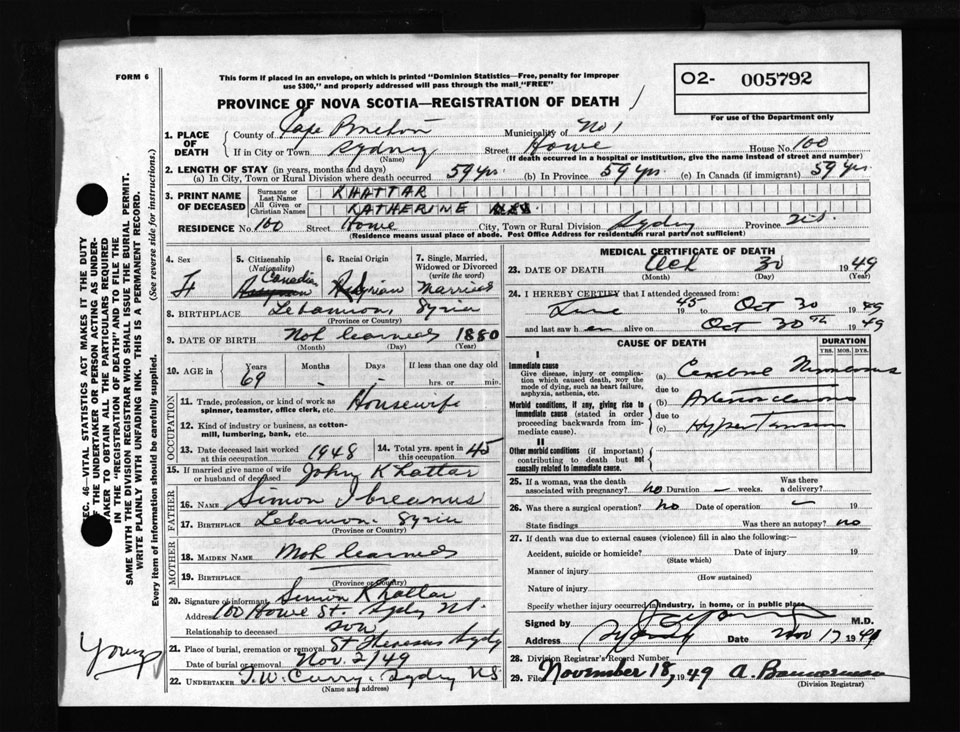 FORM 6
This form if placed in an envelope, on which is printed "Dominion Statistics—Free, penalty for improper
use $300," and properly addressed will pass through the mail "FREE"
O2- 005792
For use of the Department only
PROVINCE OF NOVA SCOTIA—REGISTRATION OF DEATH
1. PLACE OF DEATH County of Cape Breton Municipality of No 1
If in City or Town Sydney Street Howe House No. 100
(Name) (If death occurred in a hospital or institution, give the name instead of street and number)
2. LENGTH OF STAY (in years, months and days)
(a) In City, Town or Rural Division where death occurred 59 yrs. (b) In Province 59 yrs. (c) In Canada (if immigrant) 59 yrs
3. PRINT NAME OF DECEASED Surname or Last Name KHATTAR
All Given or Christian Names KATHERINE
RESIDENCE No. 100 Street Howe City, Town or Rural Division Sydney Province N.S.
(Residence means usual place of abode. Post Office Address for residents in rural parts not sufficient)
4. Sex F
5. Citizenship (Nationality) Canadian
6. Racial Origin Syrian
7. Single, Married, Widowed or Divorced (write the word) Married
8. BIRTHPLACE Lebannon, Syria
(Province or Country)
9. DATE OF BIRTH Not learned 1880
(Month) (Day) (Year)
10. AGE in Years 69 Months - Days - If less than one day
hrs. or min.
OCCUPATION
11. Trade, profession, or kind of work as spinner, teamster, office clerk, etc. Housewife
12. Kind of industry or business, as cotton-mill, lumbering, bank, etc.
13. Date deceased last worked at this occupation 1948 14. Total yrs. spent in this occupation 45
15. If married give name of wife or husband of deceased John Khattar
FATHER
16. NAME Simon
17. BIRTHPLACE Lebannon. Syria
(Province or Country)
MOTHER
18. MAIDEN NAME Not learned
19. BIRTHPLACE
(Province or Country)
20. Signature of informant Simon Khattar
Address 100 Howe St. Sydney N.S.
Relationship to deceased son
21. Place of burial, cremation or removal St Theresas Sydney
Date of burial or removal Nov. 2/49
22. UNDERTAKER T. W. Curry. Sydney N.S
(Name and address)
MEDICAL CERTIFICATE OF DEATH
23. DATE OF DEATH Oct 30 1949
(Month) (Day) (Year)
24. I HEREBY CERTIFY that I attended deceased from:
June 1945 to Oct 30 1949
and last saw h er alive on Oct 30th 1949
CAUSE OF DEATH DURATION
YRS. MOS. DYS.
I
Immediate cause
Give disease, injury or complication which caused death, not the mode of dying, such as heart failure, asphyxia, asthenia, etc.
(a) Cerebral
due to
Morbid conditions, if any, giving rise to immediate cause (stated in order proceeding backwards from immediate cause).
(b) Arteriosclerosis
due to
(c) Hypertension
II
Other morbid conditions (if important) contributing to death but not causally related to immediate cause.
25. If a woman, was the death associated with pregnancy? no Duration — weeks. Was there a delivery?
26. Was there a surgical operation? no Date of operation — 19
State findings Was there an autopsy? no
27. If death was due to external causes (violence) fill in also the following:—
Accident, suicide or homicide? Date of injury 19
(State which)
Manner of injury
(How sustained)
Nature of injury
Specify whether injury occurred in industry, in home, or in public place
Signed by M.D.
Address Sydney Date Nov 17 1949
28. Division Registrar's Record Number
29. Filed November 18, 1949 A.
(Division Registrar)
SEC. 46—VITAL STATISTICS ACT MAKES IT THE DUTY
OF THE UNDERTAKER OR PERSON ACTING AS UNDERTAKER TO OBTAIN ALL THE PARTICULARS REQUIRED
IN THE "REGISTRATION OF DEATH" AND TO FILE THE
SAME WITH THE DIVISION REGISTRAR WHO SHALL ISSUE THE BURIAL PERMIT.
WRITE PLAINLY WITH UNFADING INK. THIS IS A PERMANENT RECORD.
Every item of information should be carefully supplied. (See reverse side for instructions.)